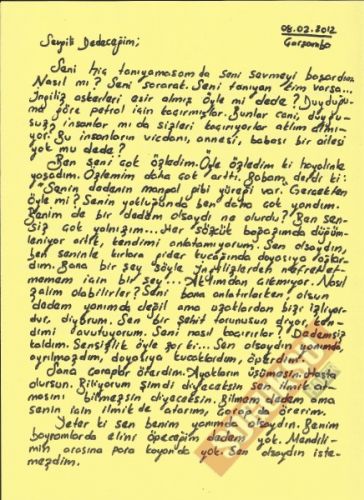 08.02.2012
Çarşamba
Sevgili Dedeciğim;
Seni hiç tanıyamasam da seni sevmeyi başardım.
Nasıl mı? Seni sorarak. Seni tanıyan kim varsa...
İngiliz askerleri esir almış öyle mi dede? Duyduğu-
ma göre petrol için kaçırmışlar. Bunlar cani, duygu-
suz? İnsanlar mı da sizleri kaçırıyorlar aklım almı-
yor. Bu insanların vicdanı, annesi, babası bir ailesi
yok mu dede?
Ben seni çok özledim. Öyle özledim ki hayalinle
yaşadım. Özlemim daha çok arttı. Babam dedi ki:
"Senin dedenin mangal gibi yüreği var. Gerçekten
öyle mi? Senin yokluğunda ben daha çok yandım.
Benim de bir dedem olsaydı ne olurdu? Ben sen-
siz çok yalnızım... Her sözcük boğazımda düğüm-
leniyor artık, kendimi anlatamıyorum. Sen olsaydın,
ben seninle kırlara gider kucağında doyasıya ağlar-
dım. Bana bir şey söyle İngilizlerden nefret et-
memem için bir şey... Aklımdan çıkmıyor. Nasıl
zalim olabilirler? Seni bana anlatırlarken olsun
dedem yanımda değil ama uzaklardan bizi izliyor-
dur, diyorum. Sen bir şehit torunusun diyor, ken-
dimi avutuyorum. Seni nasıl kaçırırlar? Dedemsiz
kaldım. Sensizlik öyle zor ki... Sen olsaydın yanımda,
ayrılmazdım, doyasıya kucaklardım, öperdim.
Sana çoraplar örerdim. Ayakların üşümesin. Hasta
olursun. Biliyorum şimdi diyeceksin sen ilmik at-
masını bilmezsin diyeceksin. Bilmem dedem ama
senin için ilmik de atarım, çorap da örerim.
Yeter ki sen benim yanımda olsaydın. Benim
bayramlarda elini öpeceğim dedem yok. Mendili-
min arasına para koyan da yok. Sen olsaydın iste-
mezdim.